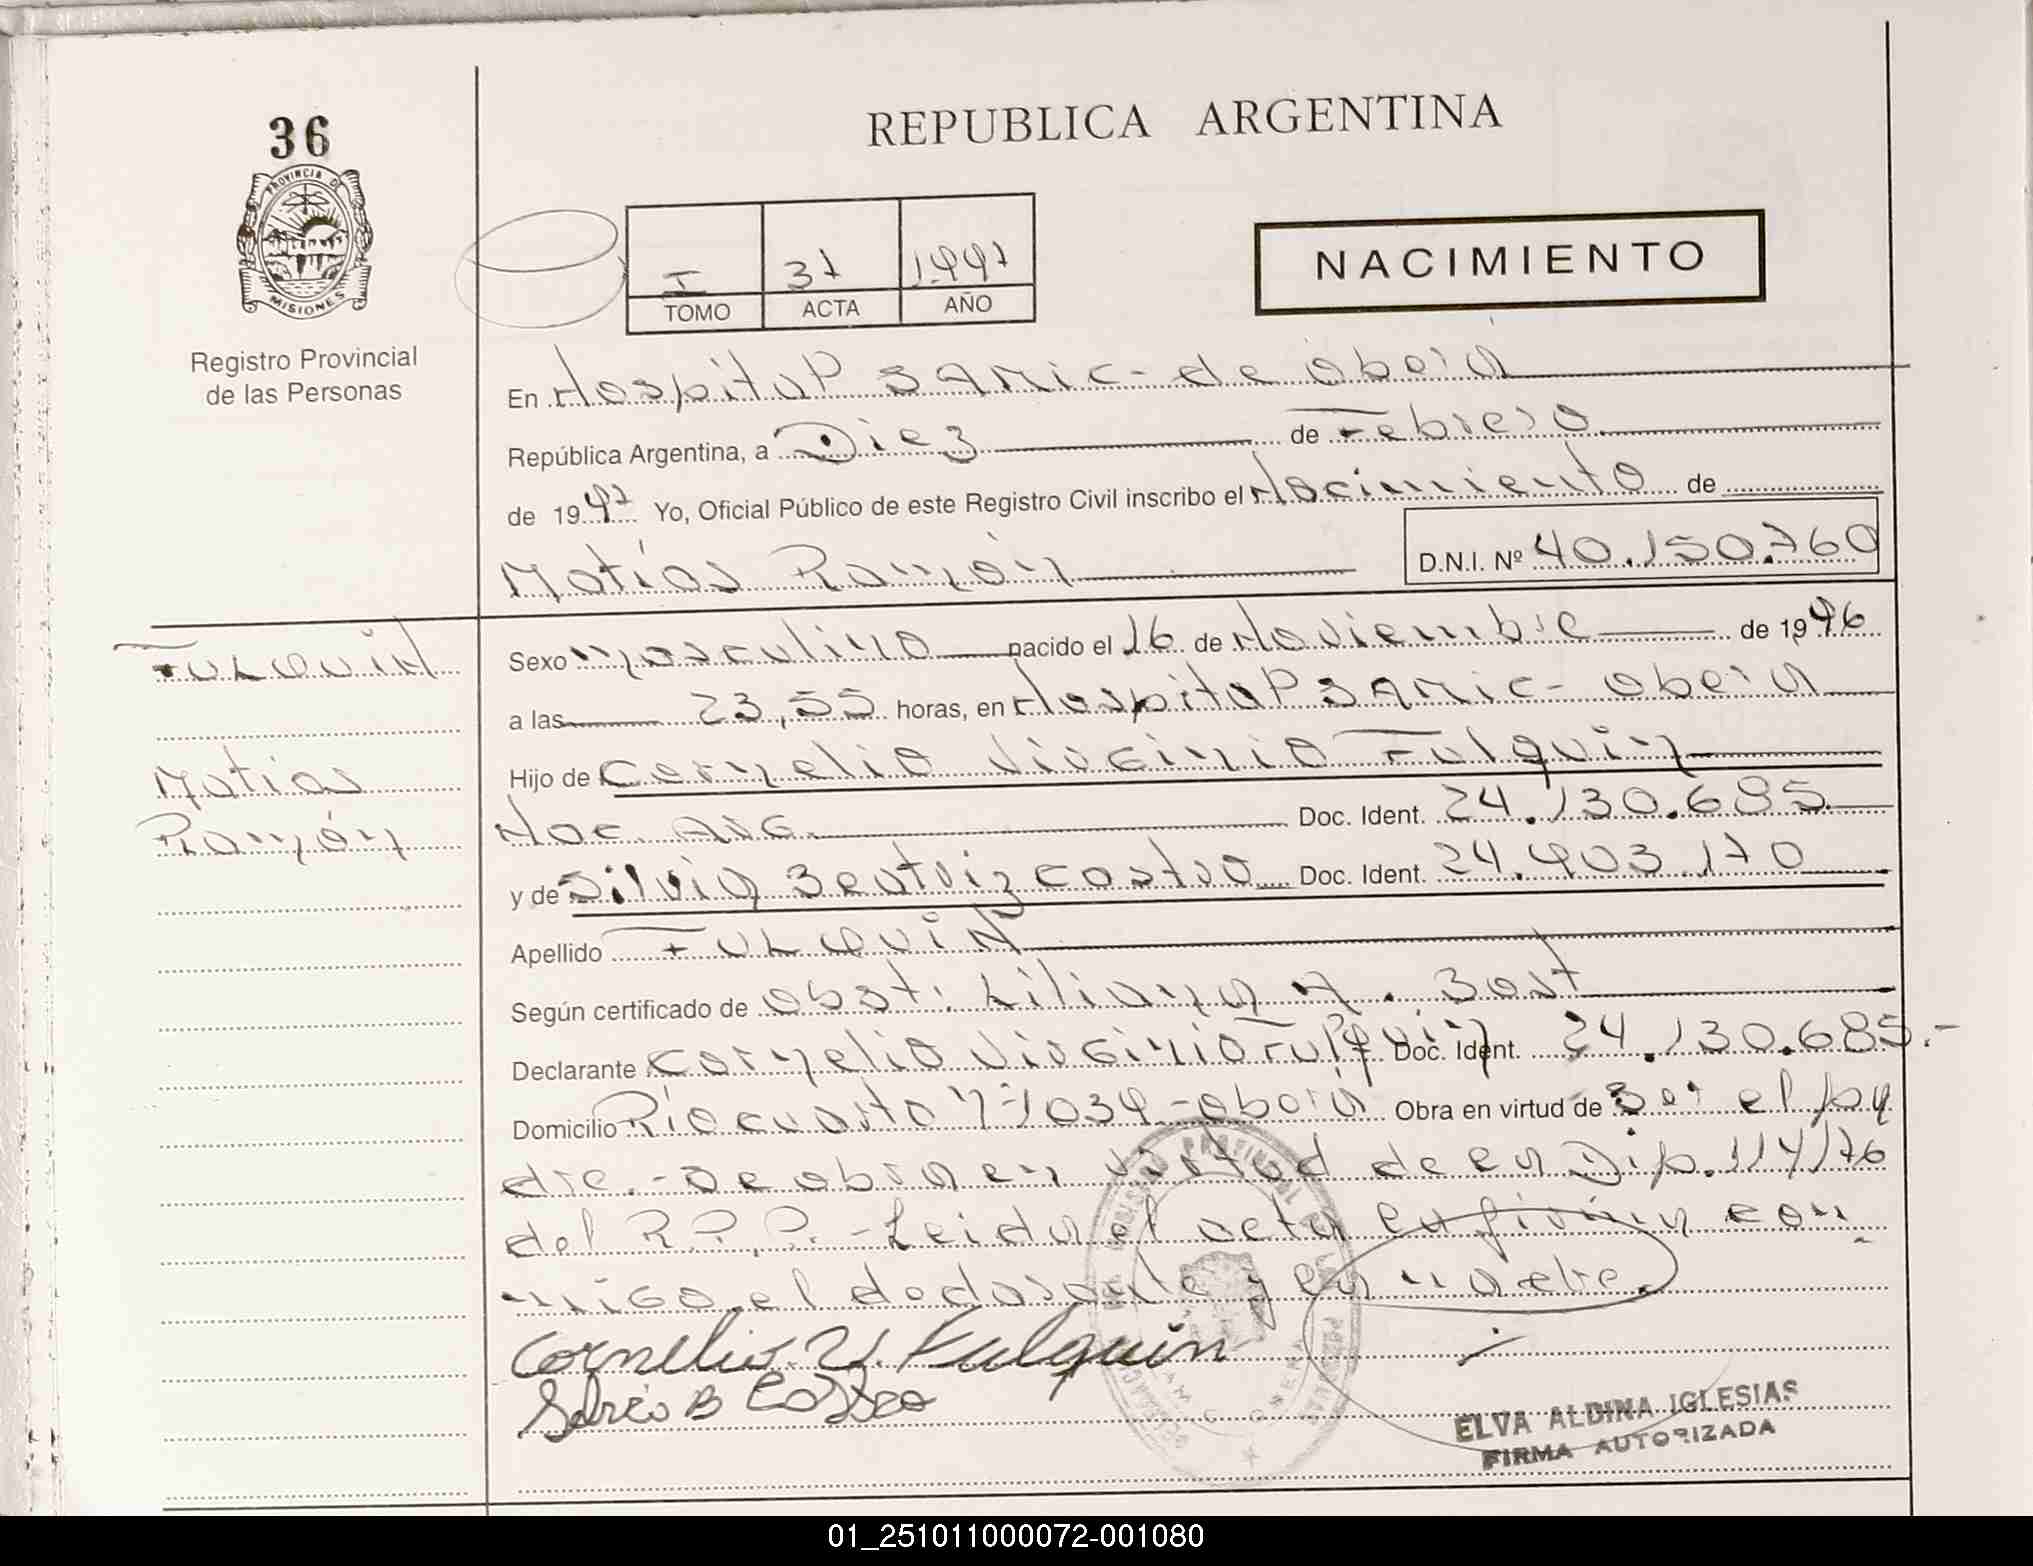 36
PROVINCIA DE
MISIONES
Registro Provincial
de las Personas
REPUBLICA ARGENTINA
I 37 1.997
TOMO ACTA AÑO
NACIMIENTO
En Hospital SAMIC - de Oberá
República Argentina, a Diez de Febrero
de 1997 Yo, Oficial Público de este Registro Civil inscribo el Nacimiento de
Matías Ramón D.N.I. Nº 40.150.760
FULQUIN
Matías
Ramón
Sexo masculino nacido el 16 de Noviembre de 1996
a las 23,55 horas, en Hospital SAMIC - Oberá
Hijo de Cornelio Virginio Fulquin
Nac. Arg. Doc. Ident. 24.130.685
y de Silvia Beatriz Castro Doc. Ident. 24.903.170
Apellido FULQUIN
Según certificado de Obst. Liliana A. Bost
Declarante Cornelio Virginio Fulquin Doc. Ident. 24.130.685.-
Domicilio Río Cuarto Nº 1039 - Oberá Obra en virtud de Ser el pa
dre.- Se obra en virtud de la Dip. 114/76
del R.P.P. - Leida el acta la firman con
migo, el declarante y la madre.
Cornelio. V. Fulquin
Silvia B Castro
ELVA ALDINA IGLESIAS
FIRMA AUTORIZADA
01_251011000072-001080